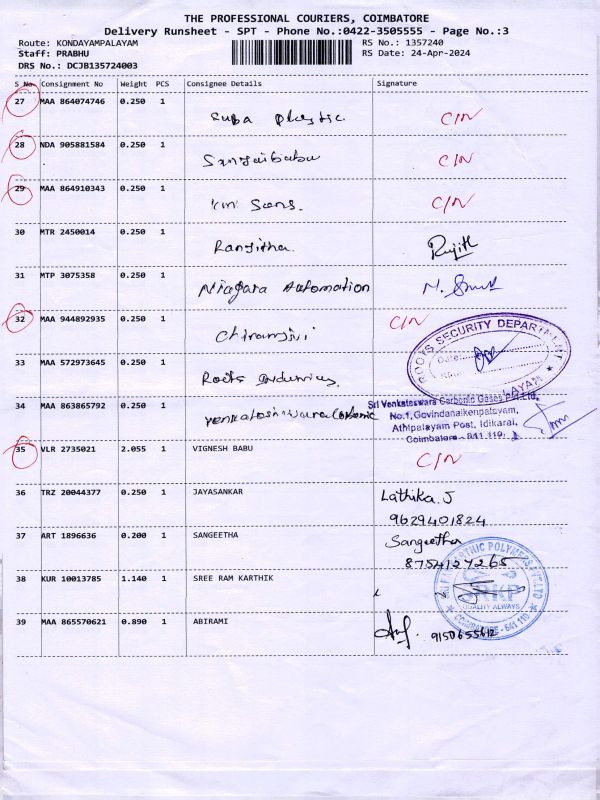 THE PROFESSIONAL COURIERS, COIMBATORE
Delivery Runsheet - SPT - Phone No.:0422-3505555 - Page No.:3
Route: KONDAYAMPALAYAM RS No.: 1357240
Staff: PRABHU RS Date: 24-Apr-2024
DRS No.: DCJB135724003
S No. Consignment No Weight PCS Consignee Details Signature
27 MAA 864074746 0.250 1 Suba Plastic C/N
28 NDA 905881584 0.250 1 Sanjaibabu C/N
29 MAA 864910343 0.250 1 C/N
30 MTR 2450014 0.250 1 Ranjitha Rujith
31 MTP 3075358 0.250 1 Niagara Automation
32 MAA 944892935 0.250 1 Chiranjivi C/N
ROOTS SECURITY DEPARTMENT
Date:
33 MAA 572973645 0.250 1 Roots Industries
34 MAA 863865792 0.250 1 Venkateshwara Carbonic
Sri Venkateswara Carbonic Gases Pvt.Ltd,
No.1, Govindanaikenpalayam,
Athipalayam Post, Idikarai,
Coimbatore - 641 110.
35 VLR 2735021 2.055 1 VIGNESH BABU C/N
36 TRZ 20044377 0.250 1 JAYASANKAR Lathika.J
9629401824
37 ART 1896636 0.200 1 SANGEETHA Sangeetha
8754127265
38 KUR 10013785 1.140 1 SREE RAM KARTHIK
SRKP
QUALITY ALWAYS
COIMBATORE - 641 110
39 MAA 865570621 0.890 1 ABIRAMI 9150655612